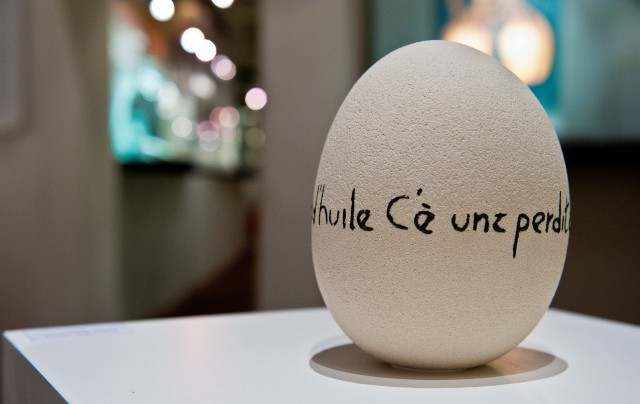 d'huile C'è una perdit